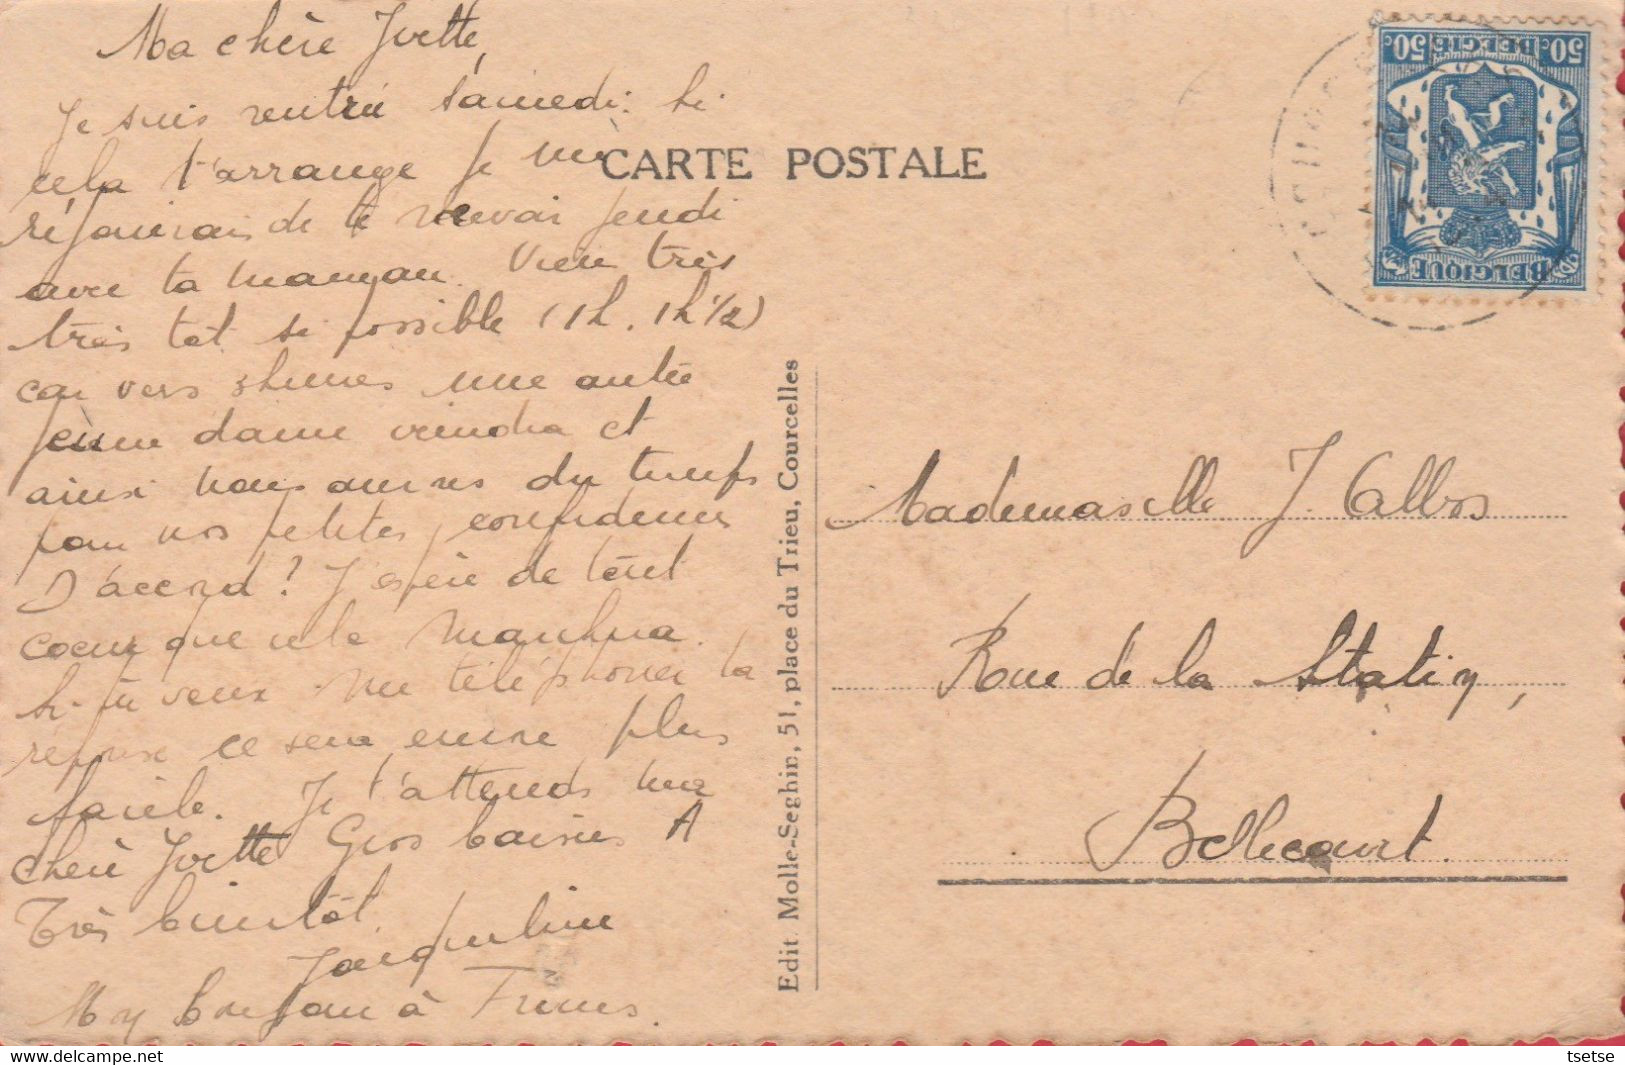 Ma chère Yvette,
Je suis rentrée samedi. Si
cela t'arrange je me
réjouirais de te revoir jeudi
avec ta maman. Viens très
très tôt si possible (1h. 1h 1/2)
car vers 3 heures une autre
jeune dame viendra et
ainsi nous aurons du temps
pour nos petites confidences
D'accord? J'espère de tout
coeur que cela marchera.
Si tu veux me téléphoner ta
réponse ce sera encore plus
facile. Je t'attends ma
chère Yvette Gros baisers A
Très bientôt.
Jacqueline
Mon bonjour à
CARTE POSTALE
Edit. Molle-Seghin, 51, place du Trieu, Courcelles
50c BELGIE 50c
BELGIQUE
Mademoiselle J. Calbos
Rue de la Station,
Bellecourt.
tsetse
www.delcampe.net